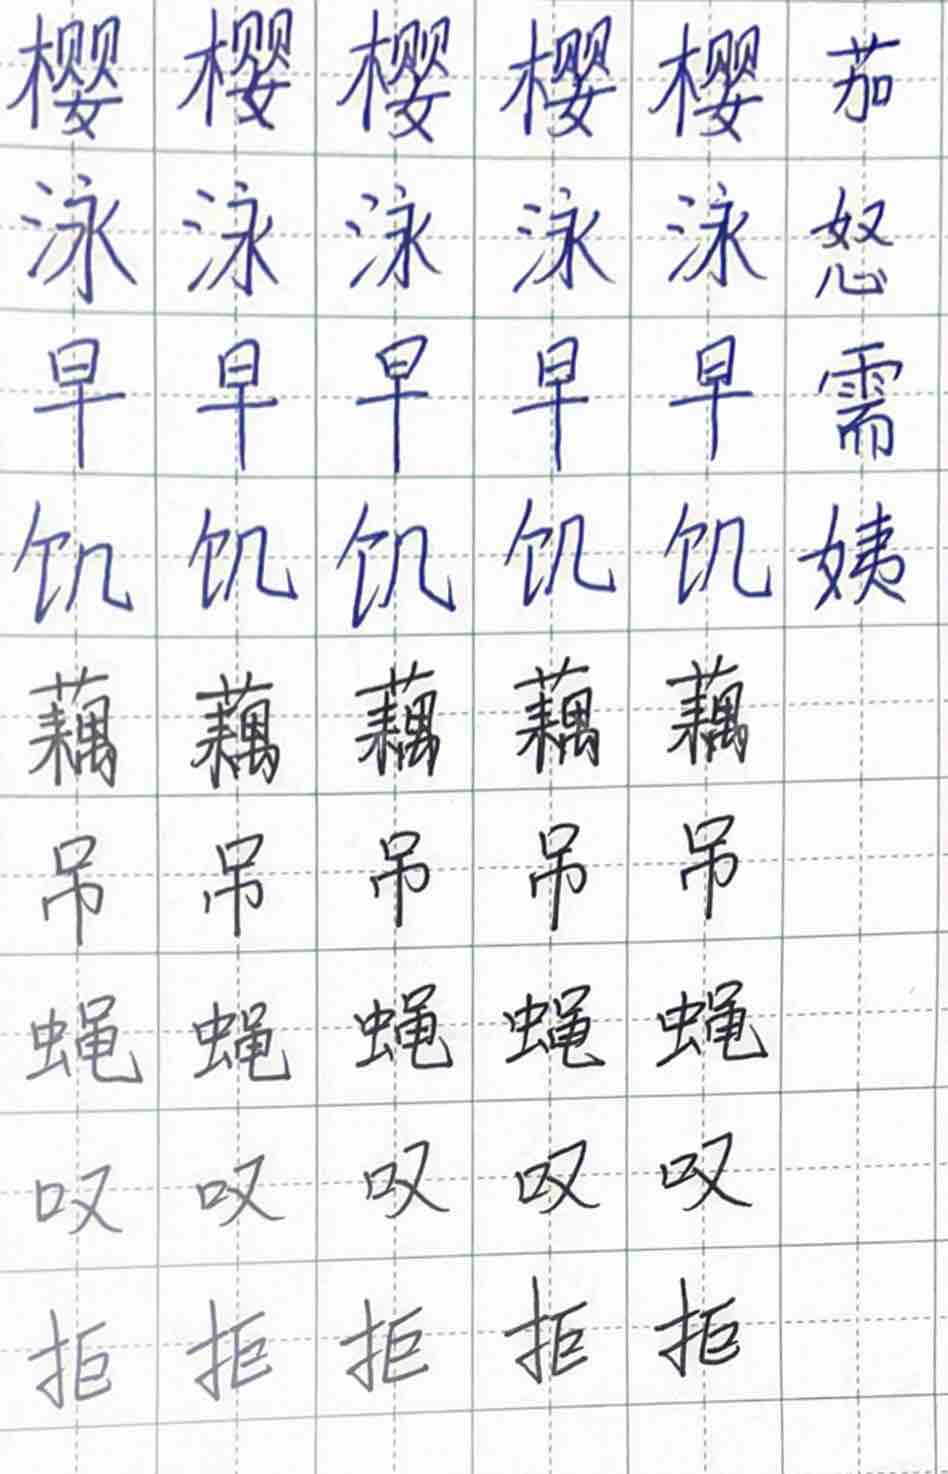 樱 樱 樱 樱 樱 茄
泳 泳 泳 泳 泳 怒
早 早 早 早 早 需
饥 饥 饥 饥 饥 姨
藕 藕 藕 藕 藕
吊 吊 吊 吊 吊
蝇 蝇 蝇 蝇 蝇
叹 叹 叹 叹 叹
拒 拒 拒 拒 拒